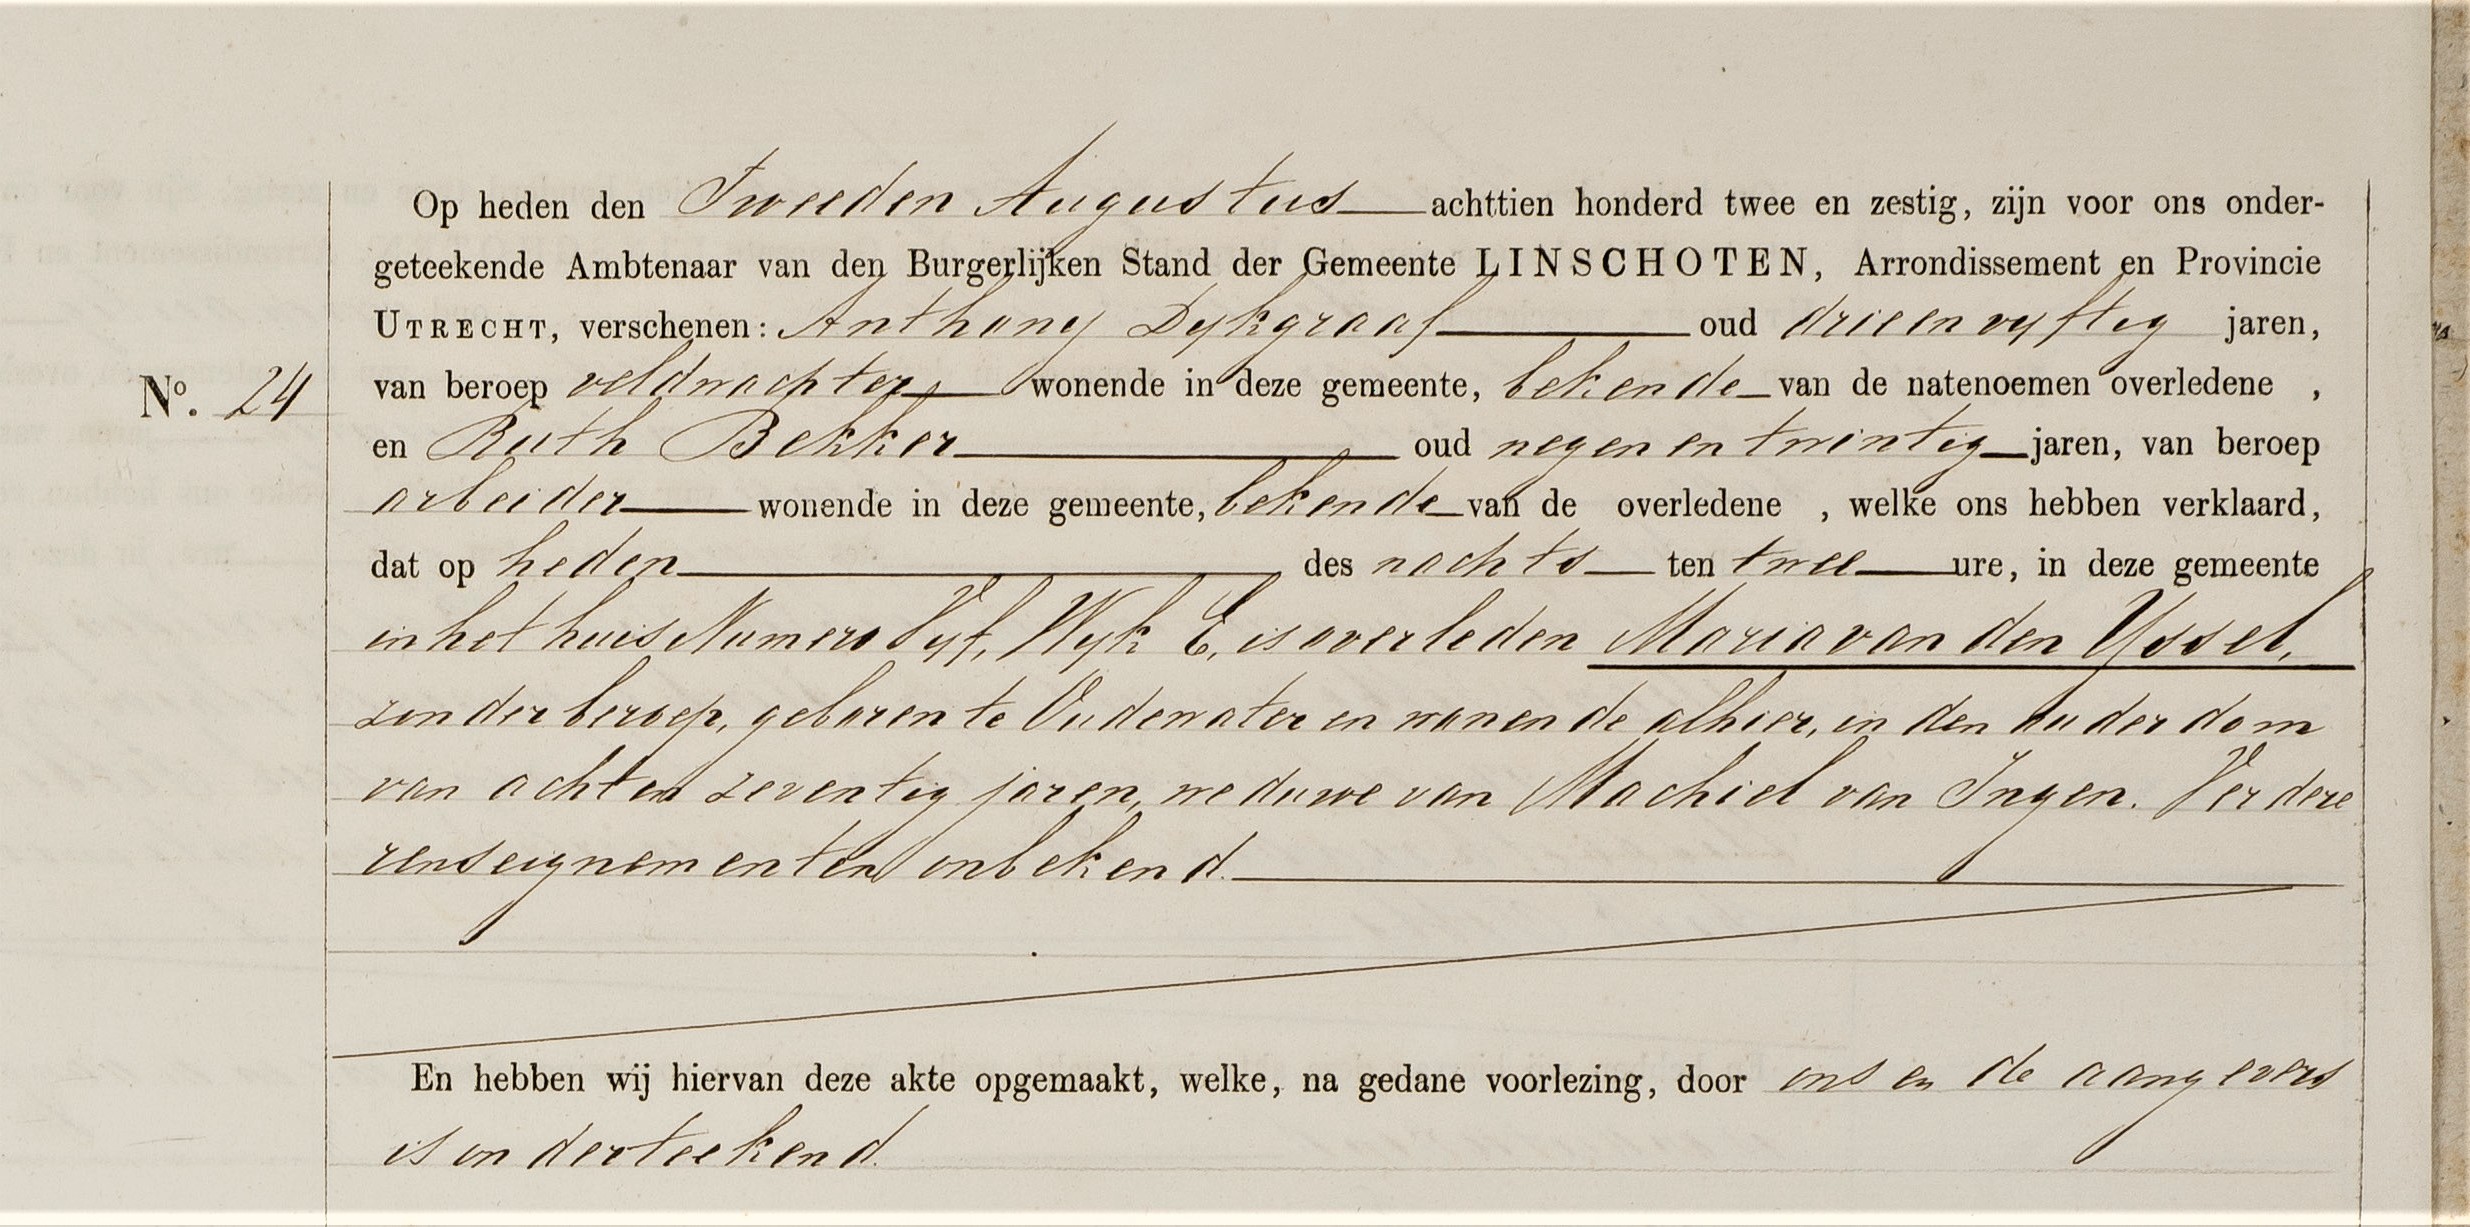 Op heden den Tweeden Augustus achttien honderd twee en zestig, zijn voor ons onder-
geteekende Ambtenaar van den Burgerlijken Stand der Gemeente LINSCHOTEN, Arrondissement en Provincie
UTRECHT, verschenen: Anthony Dykgraaf oud drie en vyftig jaren,
No. 24
van beroep veldwachter wonende in deze gemeente, bekende van de natenoemen overledene ,
en Ruth Bekker oud negen en twintig jaren, van beroep
arbeider wonende in deze gemeente, bekende van de overledene , welke ons hebben verklaard,
dat op heden des nachts ten twee ure, in deze gemeente
in het huis Numero Vyf, Wyk E, is overleden Maria van den Yssel,
zonder beroep, geboren te Oudewater en wonende alhier, in den ouderdom
van acht en zeventig jaren, weduwe van Machiel van Ingen. Verdere
renseignementen onbekend.
En hebben wij hiervan deze akte opgemaakt, welke, na gedane voorlezing, door ons en de aangevers
is onderteekend.